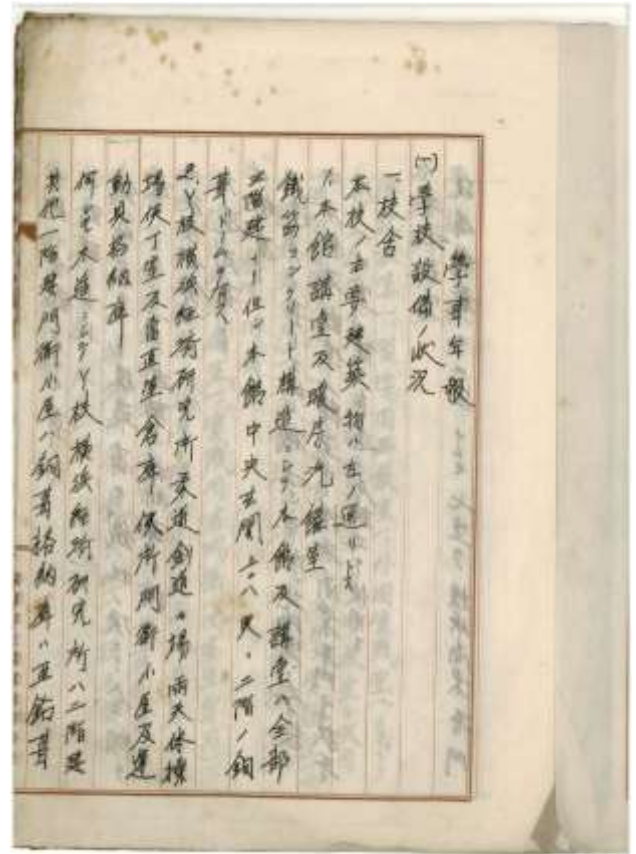 學事年報
(一)學校設備ノ狀況
一校舍
本校ノ主要建築物ハ左ノ通リトス
1.本館講堂及暖房汽罐室
鐵筋コンクリート構造ニシテ本館及講堂ハ全部
二階建トシ但シ本館中央玄關上ハ八尺、二階ノ銅
葺ドームヲ有ス
2.Y校橫濱經濟研究所柔道劍道々場雨天體操
場使丁室及宿直室倉庫便所門衛小屋及運
動具格納庫
何レモ木造ニシテY校橫濱經濟研究所ハ二階建
其他一階建門衛小屋ハ銅葺格納庫ハ亞鉛葺